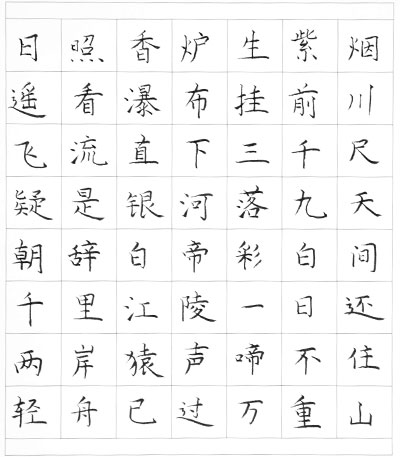 日照香炉生紫烟
遥看瀑布挂前川
飞流直下三千尺
疑是银河落九天
朝辞白帝彩白间
千里江陵一日还
两岸猿声啼不住
轻舟已过万重山